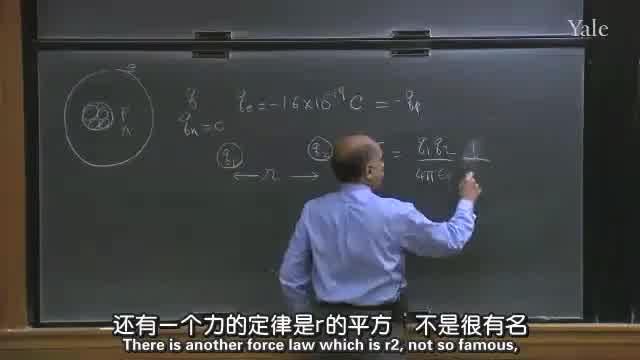 Yale
e
P
n
q qe = -1.6 × 10⁻¹⁹ C = -qp
qn = 0
q1 q2 = q1 q2 / 4πε0 1
r
还有一个力的定律是r的平方 不是很有名
There is another force law which is r2, not so famous,